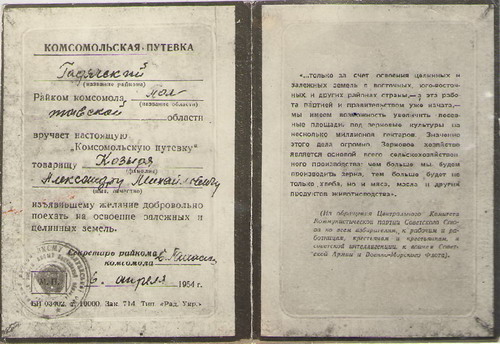 КОМСОМОЛЬСКАЯ ПУТЕВКА
Гадячский
(название райкома)
Райком комсомола
(название области)
тавской области
вручает настоящую
„Комсомольскую путевку"
товарищу Козыря
(фамилия)
Александру Михайловичу
(имя, отчество)
изъявившему желание добровольно
поехать на освоение залежных и
целинных земель.
Секретарь райкома
комсомола
6 апреля 1954 г.
БП 03402. т. 10000. Зак. 714. Тип. «Рад. Укр.»
«...только за счет освоения целинных и
залежных земель в восточных, юго-восточ-
ных и других районах страны,—а эта работа
партией и правительством уже начата,—
мы имеем возможность увеличить посев-
ные площади под зерновые культуры на
несколько миллионов гектаров. Значение
этого дела огромно. Зерновое хозяйство
является основой всего сельскохозяйствен-
ного производства: чем больше мы будем
производить зерна, тем больше будет не
только хлеба, но и мяса, масла и других
продуктов животноводства».
(Из обращения Центрального Комитета
Коммунистической партии Советского Сою-
за ко всем избирателям, к рабочим и ра-
ботницам, крестьянам и крестьянкам, к
советской интеллигенции, к воинам Совет-
ской Армии и Военно-Морского Флота).